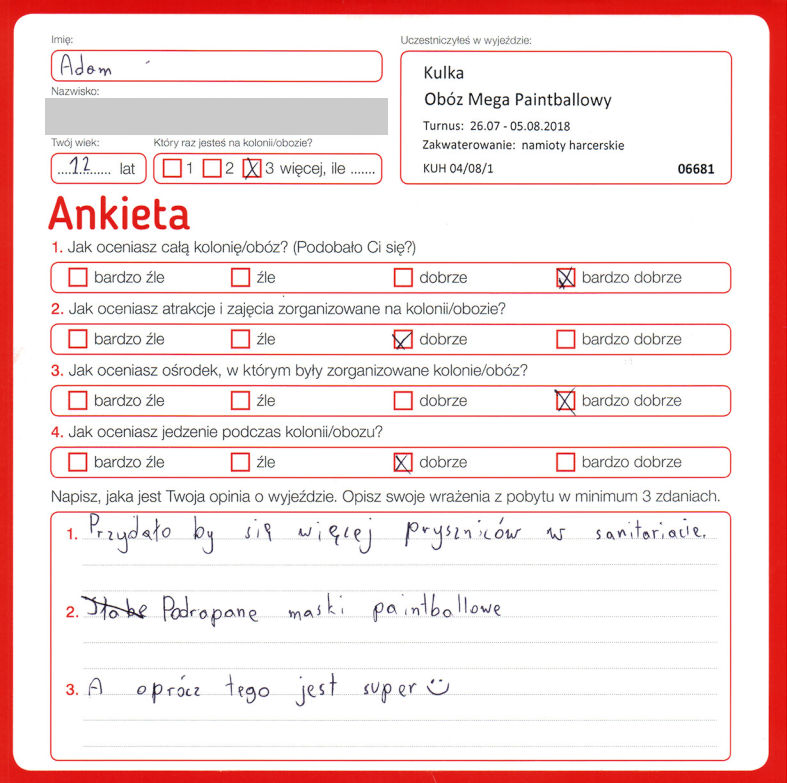 Imię:
Uczestniczyłeś w wyjeździe:
Adam
Kulka
Obóz Mega Paintballowy
Nazwisko:
Turnus: 26.07 - 05.08.2018
Zakwaterowanie: namioty harcerskie
KUH 04/08/1 06681
Twój wiek: Który raz jesteś na kolonii/obozie?
....12........ lat 1 2 3 więcej, ile .......
Ankieta
1. Jak oceniasz całą kolonię/obóz? (Podobało Ci się?)
bardzo źle źle dobrze bardzo dobrze
2. Jak oceniasz atrakcje i zajęcia zorganizowane na kolonii/obozie?
bardzo źle źle dobrze bardzo dobrze
3. Jak oceniasz ośrodek, w którym były zorganizowane kolonie/obóz?
bardzo źle źle dobrze bardzo dobrze
4. Jak oceniasz jedzenie podczas kolonii/obozu?
bardzo źle źle dobrze bardzo dobrze
Napisz, jaka jest Twoja opinia o wyjeździe. Opisz swoje wrażenia z pobytu w minimum 3 zdaniach.
1. Przydało by się więcej pryszniców w sanitariacie.
2. Podrapane maski paintballowe
3. A oprócz tego jest super